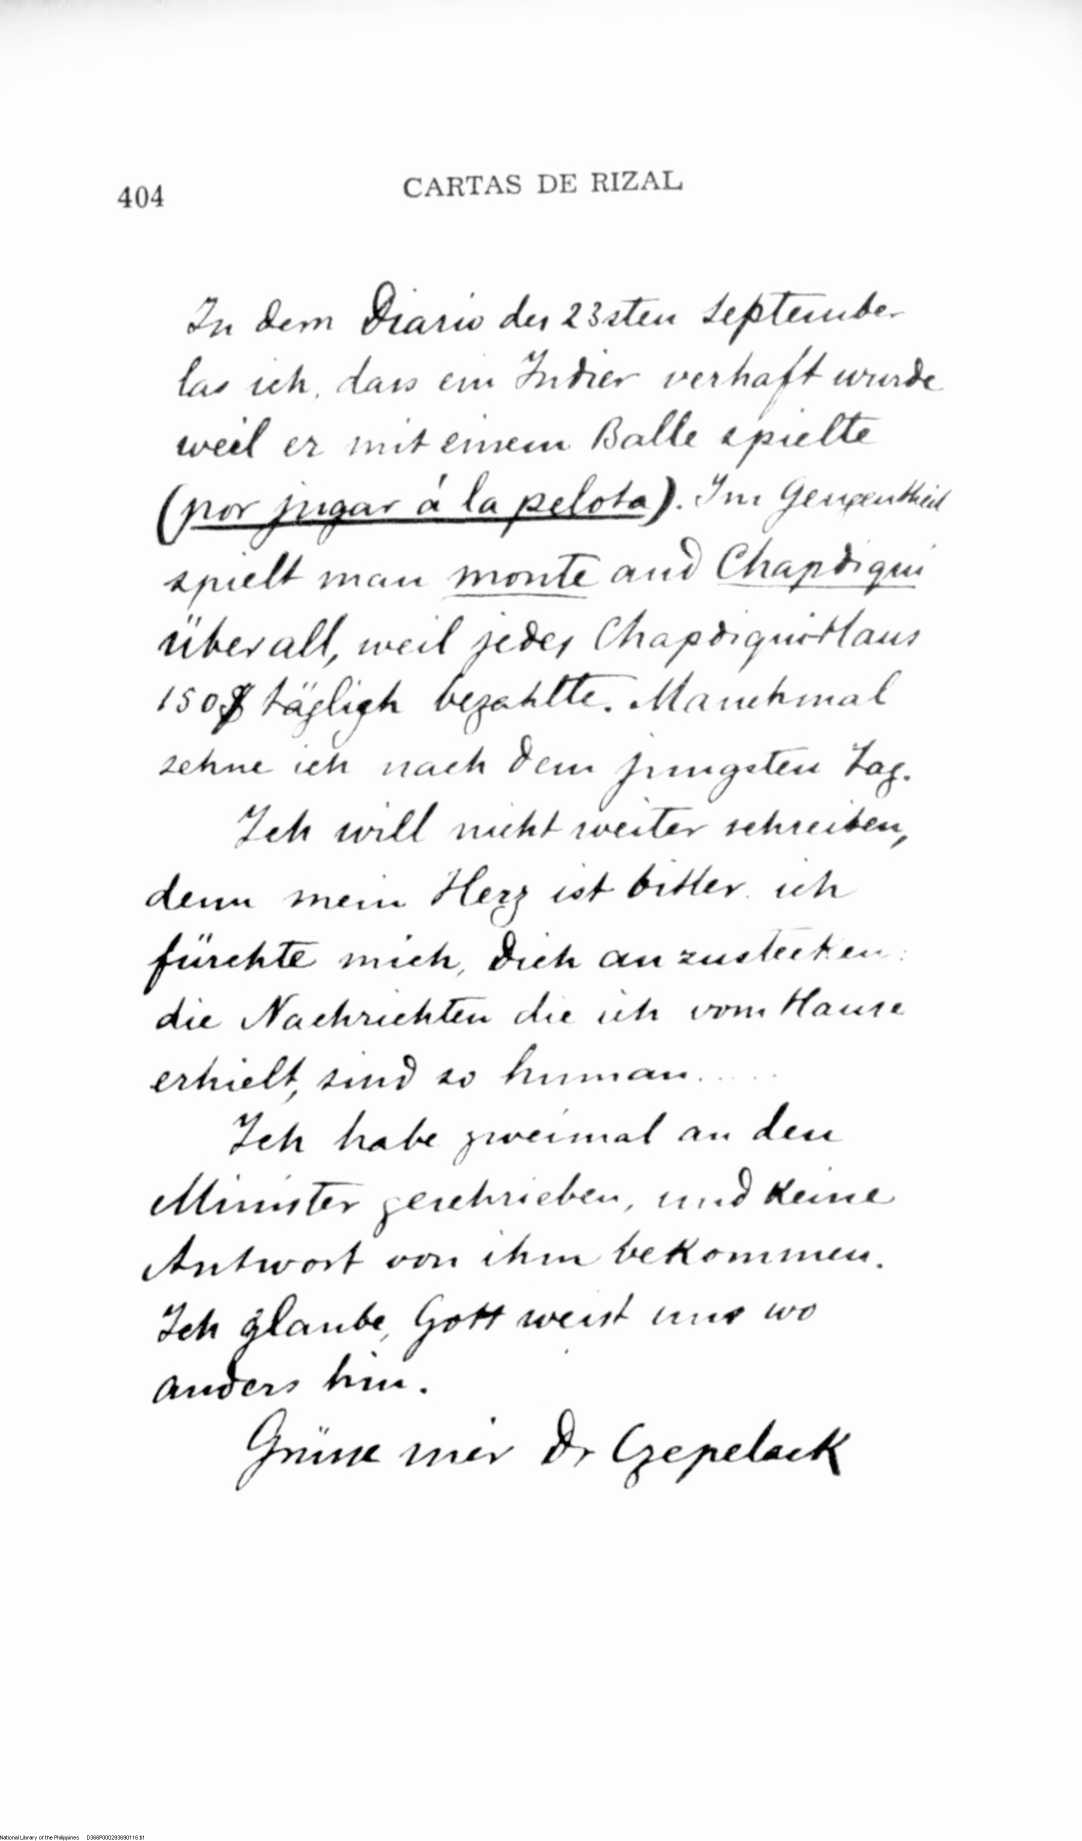 404
CARTAS DE RIZAL
In dem Diario des 23sten September
las ich, dass ein Indier verhaft wurde
weil er mit einem Balle spielte
(por jugar á la pelota). Im Gengentheil
spielt man monte and Chapdiqui
Überall, weil jedes ChapdiquiHaus
150$ täglich bezahlte. Manchmal
sehne ich nach dem jungsten Tag.
Ich will nicht weiter schreiben,
denn mein Herz ist bitter. ich
fürchte mich, Dich anzustecken:
die Nachrichten die ich vom Hause
erhielt, sind so human.....
Ich habe zweimal an den
Minister geschrieben, und keine
Antwort von ihm bekommen.
Ich glaube, Gott weist uns wo
anders hin.
Grüsse mir Dr Czepelack
National Library of the Philippines